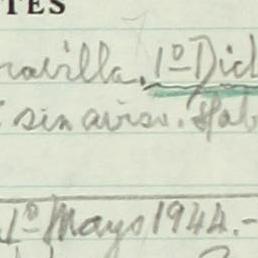 TES
ravilla. 1º Dich
sin aviso. Hab
1º Mayo 1944.-